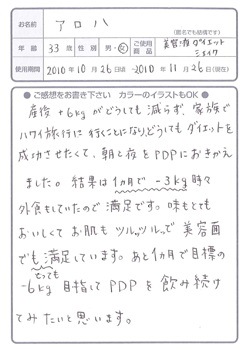 お名前 アロハ
(匿名でも結構です)
年齢 33 歳 男・女 ご使用商品 美容液ダイエットシェイク
使用期間 2010年10月26日頃 ~2010年11月26日(現在)
●ご感想をお書き下さい カラーのイラストもOK●
産後+6kgがどうしても減らず、家族で
ハワイ旅行に行くことになり、どうしてもダイエットを
成功させたくて、朝と夜をPDPにおきかえ
ました。結果は1カ月で-3kg 時々
外食もしていたので満足です。味もとても
おいしくてお肌もツルッツルッで美容面
でもとっても満足しています。あと1カ月で目標の
-6kg目指してPDPを飲み続け
てみたいと思います。